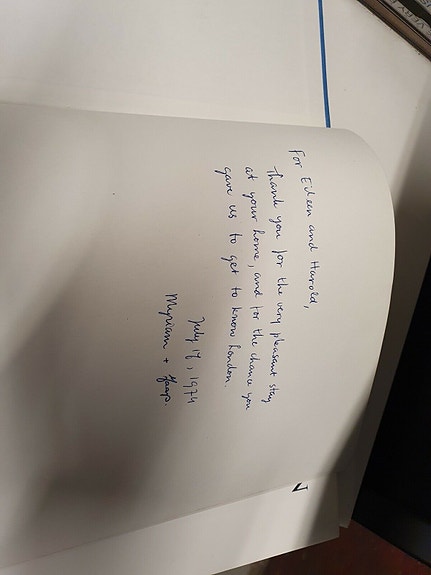 For Eileen and Harold,
Thank you for the very pleasant stay
at your home, and for the chance you
gave us to get to know London.
July 17, 1974
Myriam + Jaap.